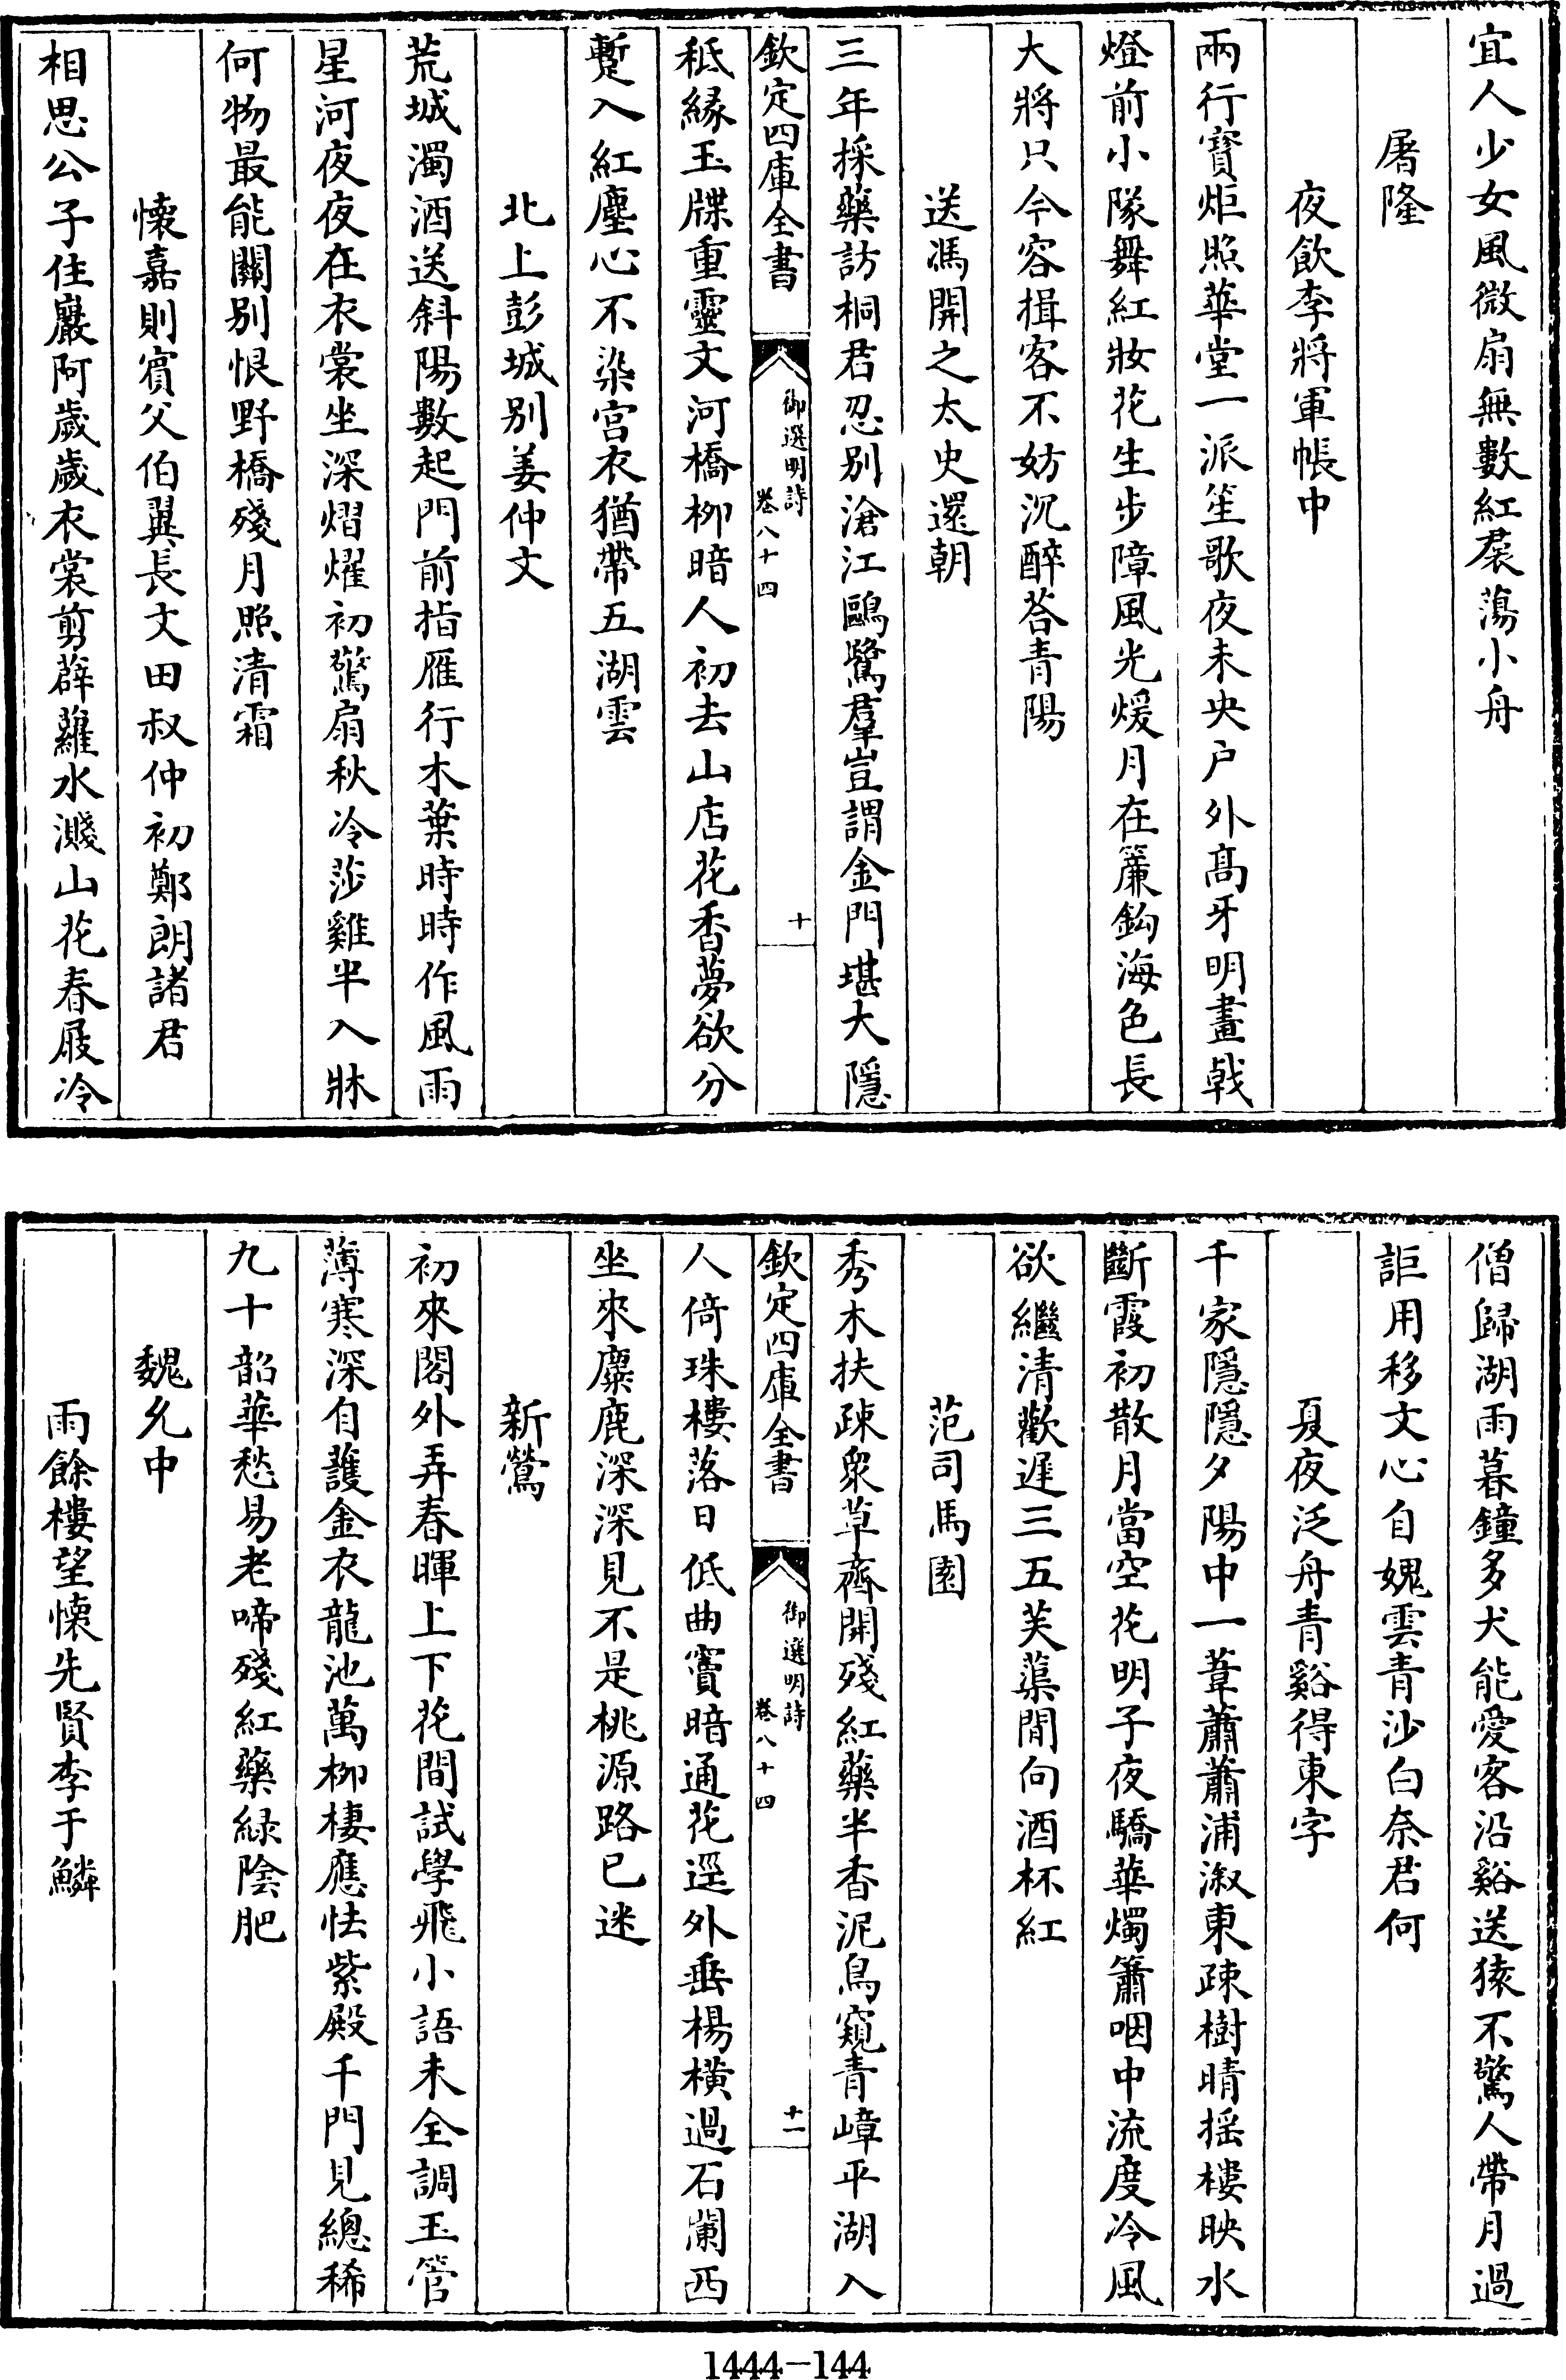 宜人少女風微扇無數紅裠蕩小舟
屠隆
夜飲李將軍帳中
兩行寶炬照華堂一派笙歌夜未央户外髙牙明畫戟
燈前小隊舞紅妝花生步障風光煖月在簾鈎海色長
大將只今容揖客不妨沉醉荅青陽
送馮開之太史還朝
三年採藥訪桐君忍别滄江鷗鷺羣豈謂金門堪大隱
欽定四庫全書
御選明詩
卷八十四
十
秪緣玉牒重靈文河橋柳暗人初去山店花香夢欲分
蹔入紅塵心不染宮衣猶帶五湖雲
北上彭城别姜仲文
荒城濁酒送斜陽數起門前指雁行木葉時時作風雨
星河夜夜在衣裳坐深熠燿初驚扇秋冷莎雞半入牀
何物最能關别恨野橋殘月照清霜
懷嘉則賓父伯翼長文田叔仲初鄭朗諸君
相思公子住巖阿歲歲衣裳剪薜蘿水濺山花春屐冷
僧歸湖雨暮鐘多犬能愛客沿谿送猿不驚人帶月過
詎用移文心自媿雲青沙白奈君何
夏夜泛舟青谿得東字
千家隱隱夕陽中一葦蕭蕭浦溆東疎樹晴摇樓映水
斷霞初散月當空花明子夜驕華燭簫咽中流度冷風
欲繼清歡遲三五芙蕖閒向酒杯紅
范司馬園
秀木扶疎衆草齊開殘紅藥半香泥鳥窺青嶂平湖入
欽定四庫全書
御選明詩
卷八十四
十一
人倚珠樓落日低曲竇暗通花逕外垂楊橫過石闌西
坐來麋鹿深深見不是桃源路已迷
新鶯
初來閣外弄春暉上下花間試學飛小語未全調玉管
薄寒深自護金衣龍池萬柳棲應怯紫殿千門見總稀
九十韶華愁易老啼殘紅藥緑陰肥
魏允中
雨餘樓望懷先賢李于鱗
1444-144